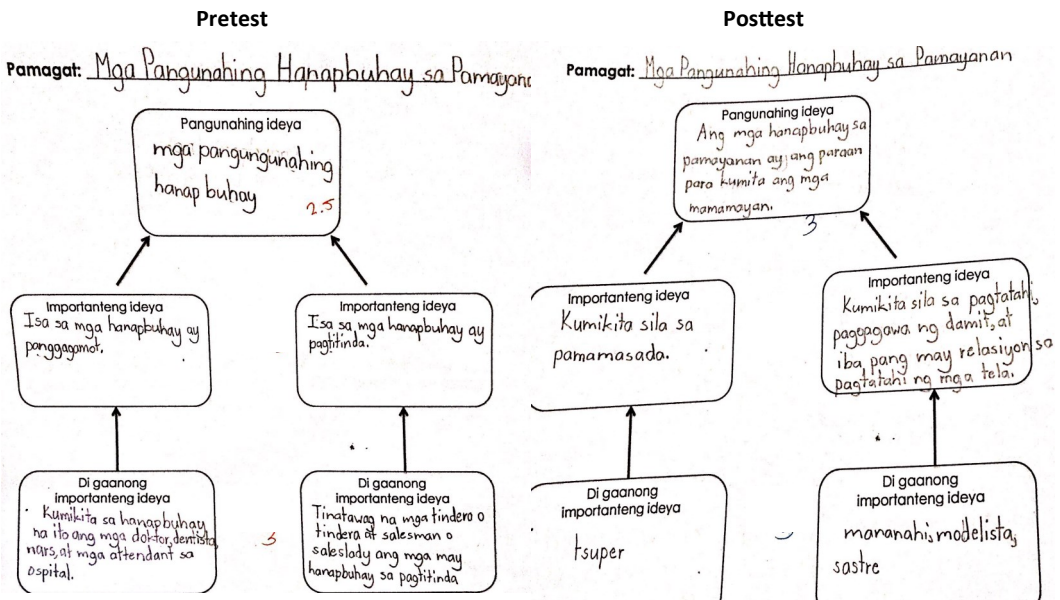 Pretest
Pamagat: Mga Pangunahing Hanapbuhay sa Pamayana
Pangunahing ideya
mga pangungunahing
hanap buhay
2.5
Importanteng ideya
Isa sa mga hanapbuhay ay
panggagamot.
Importanteng ideya
Isa sa mga hanapbuhay ay
pagtitinda.
Di gaanong
importanteng ideya
Kumikita sa hanapbuhay
na ito ang mga doktor, dentista,
nars, at mga attendant sa
ospital.
3
Di gaanong
importanteng ideya
Tinatawag na mga tindero o
tindera at salesman o
saleslady ang mga may
hanapbuhay sa pagtitinda
Posttest
Pamagat: Mga Pangunahing Hanapbuhay sa Pamayanan
Pangunahing ideya
Ang mga hanapbuhay sa
pamayanan ay ang paraan
para kumita ang mga
mamamayan.
3
Importanteng ideya
Kumikita sila sa
pamamasada.
Importanteng ideya
Kumikita sila sa pagtatahi,
paggagawa ng damit, at
iba pang may relasiyon sa
pagtatahi ng mga tela.
Di gaanong
importanteng ideya
tsuper
Di gaanong
importanteng ideya
mananahi, modelista,
sastre